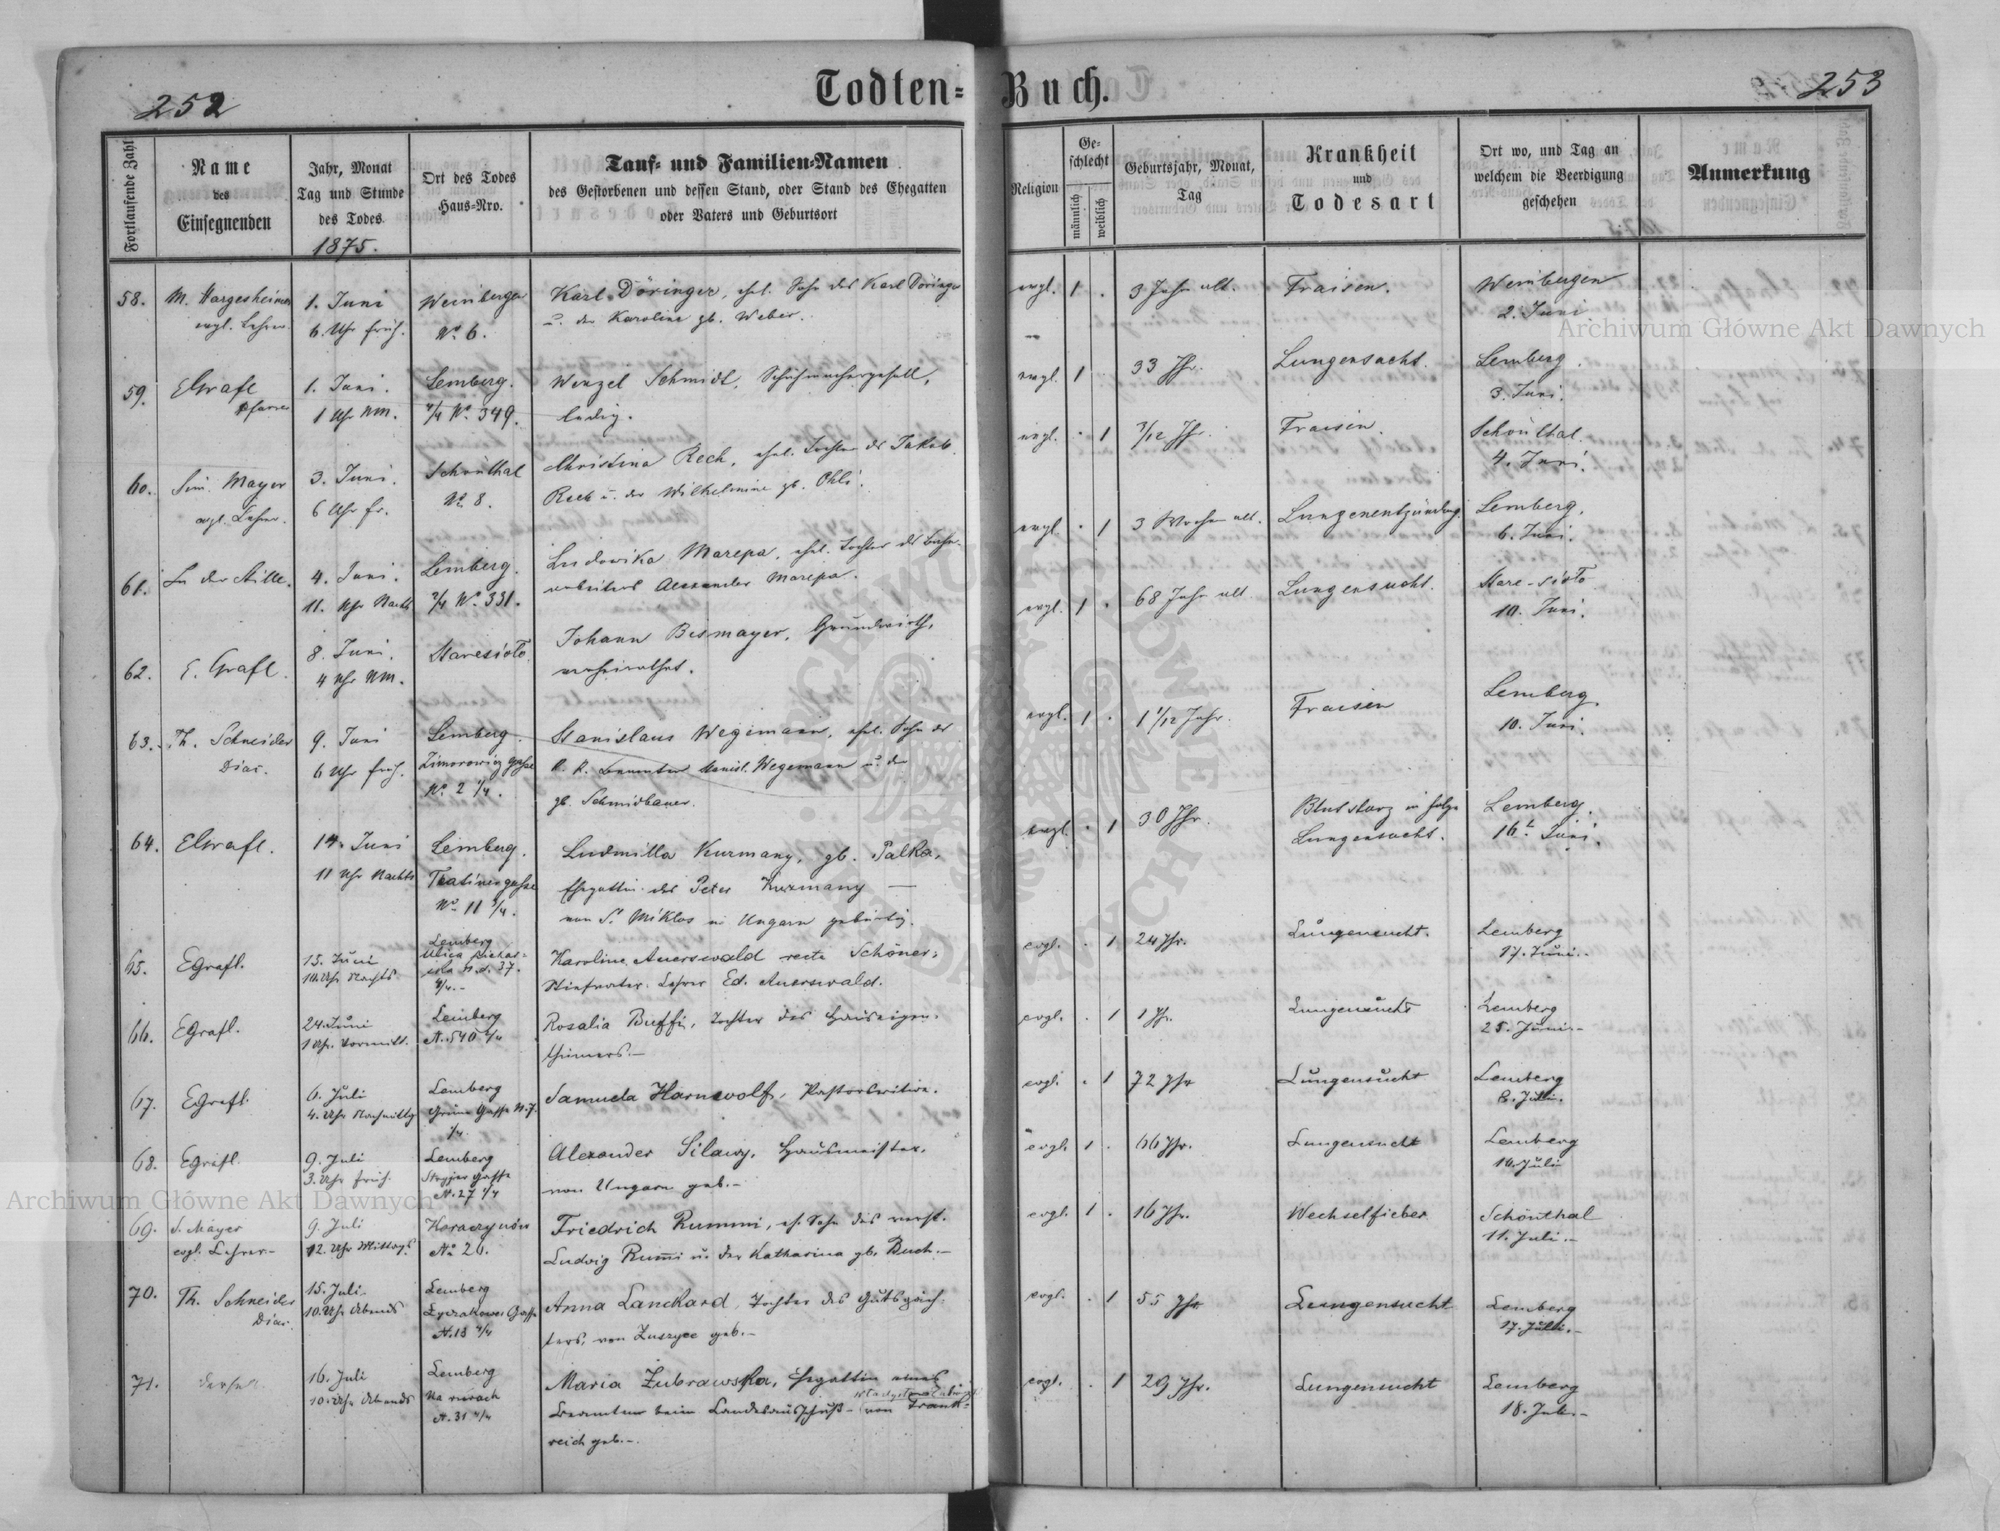 252
Todten-
Buch.
253
Fortlaufende Zahl
Name
des
Einsegnenden
Jahr, Monat
Tag und Stunde
des Todes
1875.
Ort des Todes
Haus-Nro.
Tauf- und Familien-Namen
des Gestorbenen und dessen Stand, oder Stand des Ehegatten
oder Vaters und Geburtsort
Religion
Ge-
schlecht
männlich
weiblich
Geburtsjahr, Monat,
Tag
Krankheit
und
Todesart
Ort wo, und Tag an
welchem die Beerdigung
geschehen
Anmerkung
58.
M. Hargesheimer
evgl. Lehrer
1. Juni
6 Uhr früh.
Weinbergen
No 6.
Karl Döringer, ehl. Sohn des Karl Döringer
u. der Karoline gb. Weber.
evgl. 1 .
3 Jahr alt.
Fraisen.
Weinbergen
2. Juni
59.
EGrafl
Pfarrer
1. Juni.
1 Uhr NM.
Lemberg.
4/4 No 349.
Wenzel Schmidt, Schuhmachergesell,
ledig.
evgl. 1
33 Jhr.
Lungensucht.
Lemberg.
3. Juni.
60.
Sim. Mayer
evgl. Lehrer.
3. Juni.
6 Uhr fr.
Schönthal
No 8.
Christina Rech, ehel. Tochter des Jakob
Rech u. der Wilhelmine gb. Ohli.
evgl. . 1
3/12 Jhr.
Fraisen.
Schönthal.
4. Juni.
61.
In der Stille.
4. Juni.
11. Uhr Nachts
Lemberg.
2/4 No 331.
Ludowika Marepa, ehel. Tochter des Bahn-
arbeiters Alexander Marepa.
evgl. . 1
3 Wochen alt.
Lungenentzündung.
Lemberg.
6. Juni.
62.
E. Grafl.
8. Juni.
4 Uhr NM.
Staresioło.
Johann Bismayer, Grundwirth,
verheirathet.
evgl. 1 .
68 Jahr alt
Lungensucht.
Stare-sioło
10. Juni.
63.
Th. Schneider
Diac.
9. Juni
6 Uhr früh.
Lemberg.
Zimorowicz gasse
No 2 1/4.
Stanislaus Wegemann, ehel. Sohn des
k. k. Beamten Stanisl. Wegemann u. der
gb. Schmidbauer.
evgl. 1 .
1 1/12 Jahr.
Fraisen
Lemberg.
10. Juni.
64.
EGrafl.
14. Juni
11 Uhr Nachts
Lemberg.
Teatinergasse
No 11 3/4.
Ludmilla Kurmany, gb. Palka,
Ehegattin des Peter Kurmany —
von St Miklos in Ungarn gebürtig.
evgl. . 1
30 Jhr.
Blutsturz in folge
Lungensucht.
Lemberg.
16t Juni.
65.
EGrafl.
15. Juni
10. Uhr Nachts
Lemberg
N. 37.
Karoline Auerswald recte Schöner,
Stiefvater. Lehrer Ed. Auerswald.
evgl. . 1
24 Jhr.
Lungensucht.
Lemberg
17. Juni.-
66.
EGrafl.
24. Juni
1 Uhr. Vormitt.
Lemberg
N. 540 4/4
Rosalia Buffi, Tochter des Hauseigen-
thümers.—
evgl. . 1
1 Jhr.
Lungensucht
Lemberg
25. Juni.-
67.
EGrafl.
6. Juli
4. Uhr Nachmittg
Lemberg
Grüne Gasse N. 7.
1/4.
Samuela Harnwolf, Pastorswitwe.
evgl. . 1
72 Jhr
Lungensucht
Lemberg
8. Juli.
68.
EGrafl.
9. Juli
3. Uhr früh.
Lemberg
Stryjer Gasse
N. 27 1/4
Alexander Silawy, Hausmeister,
von Ungarn geb.-
evgl. 1 .
66 Jhr.
Lungensucht
Lemberg
10. Juli
69.
S. Mayer
evgl. Lehrer-
9. Juli
12. Uhr Mittags
Koraczynow
No 20.
Friedrich Rummi, eh. Sohn des verst.
Ludwig Rumi u. der Katharina gb. Buch.-
evgl. 1 .
16 Jhr.
Wechselfieber
Schönthal
11. Juli.-
70.
Th. Schneider
Diac.
15. Juli.
10. Uhr Abends
Lemberg
Łyczakower Gasse
N. 18 4/4
Anna Lanckard, Tochter des Gutspäch-
ters, von Zuszyce geb.-
evgl. . 1
55 Jhr
Lungensucht
Lemberg
17. Juli.-
71.
derselbe
16. Juli
10. Uhr Abends
Lemberg
Na rurach
N. 31 4/4
Maria Żubrawska, Ehegattin eines
Beamten beim Landesausschuß- von Frank-
reich geb.-
evgl. . 1
29 Jhr.
Lungensucht
Lemberg
18. Juli.-
Archiwum Główne Akt Dawnych
Archiwum Główne Akt Dawnych